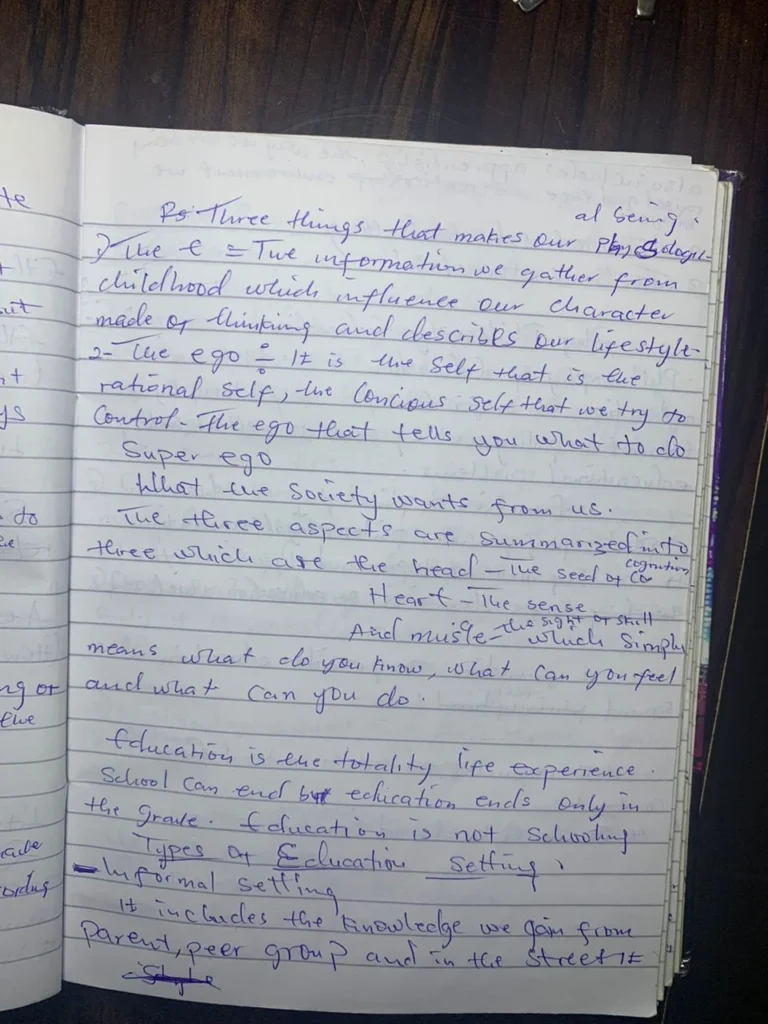 te
al being.
Ps. Three things that makes our Physiologi-
1) The E = The information we gather from
childhood which influence our character
made of thinking and describes our lifestyle-
2- The ego ÷ It is the self that is the
rational self, the Concious self that we try to
Control - The ego that tells you what to do
Super ego
What the society wants from us.
The three aspects are summarized into
three which are the head - The seed of cognition
Heart - The sense
And musle - the sight or skill which simply
means what do you know, what can you feel
and what can you do.
Education is the totality life experience.
School can end but education ends only in
the grave. Education is not schooling
Types of Education setting.
- Informal setting
It includes the knowledge we gain from
parent, peer group and in the street It
ut
ys
to
ng or
the